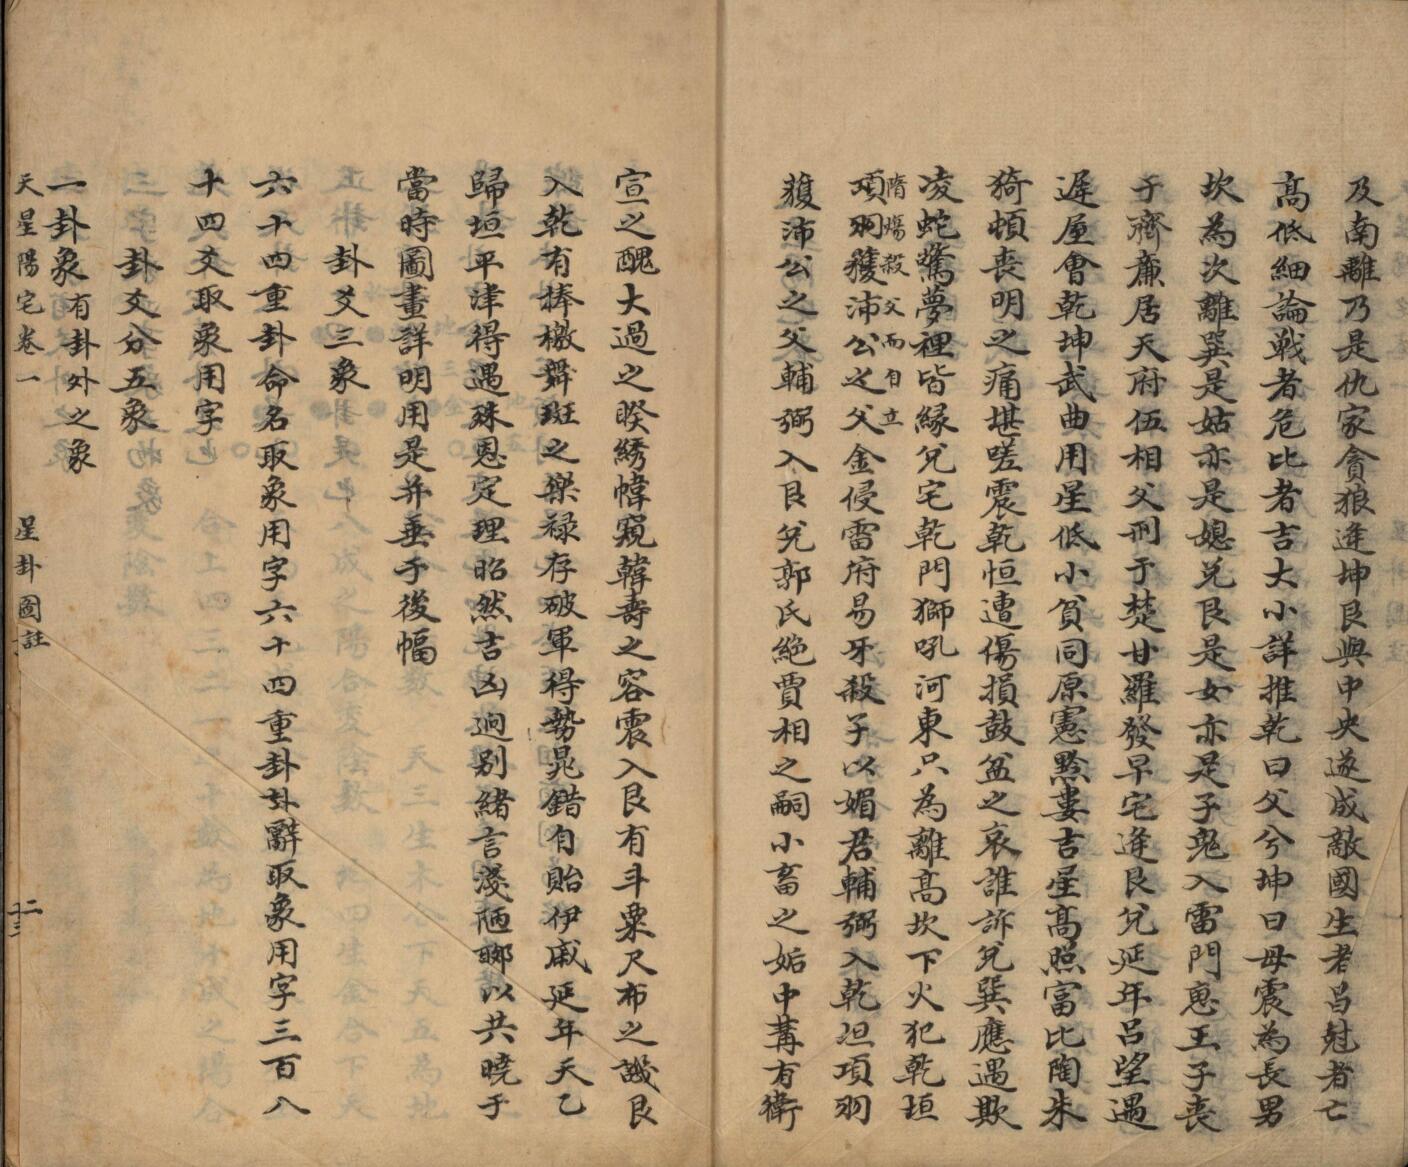 及南離乃是仇家貪狼逢坤艮與中央遂成敵國生者昌尅者亡
髙低細論戦者危比者吉大小詳推乾曰父兮坤曰母震為長男
坎為次離巽是姑亦是媳兌艮是女亦是子鬼入雷門恵王子喪
于齊廉居天府伍相父刑于楚甘羅發早宅逢艮兌延年吕望遇
遅屋會乾坤武曲用星低小貧同原憲黔婁吉星髙照富比陶朱
猗頓喪明之痛堪嗟震乾恒遭傷損鼓盆之哀誰訴兌巽應遇欺
凌蛇驚夢裡皆縁兌宅乾門獅吼河東只為離髙坎下火犯乾垣
隋煬殺父而自立
項羽獲沛公之父金侵雷府易牙殺子以媚君輔弼入乾垣項羽
獲沛公之父輔弼入艮兌郭氏絶賈相之嗣小畜之姤中冓有衛
宣之醜大過之睽綉幃窺韓壽之容震入艮有斗粟尺布之譏艮
入乾有捧檄舞斑之樂禄存破軍得勢晁錯自貽伊戚延年天乙
歸垣平津得遇殊恩定理昭然吉凶逈别緒言淺陋郷以共曉于
當時圖畫詳明用是并垂于後幅
卦爻三象
六十四重卦命名取象用字六十四重卦卦辭取象用字三百八
十四爻取象用字
卦爻分五象
一卦象有卦外之象
天星陽宅卷一 星卦圖註 二三